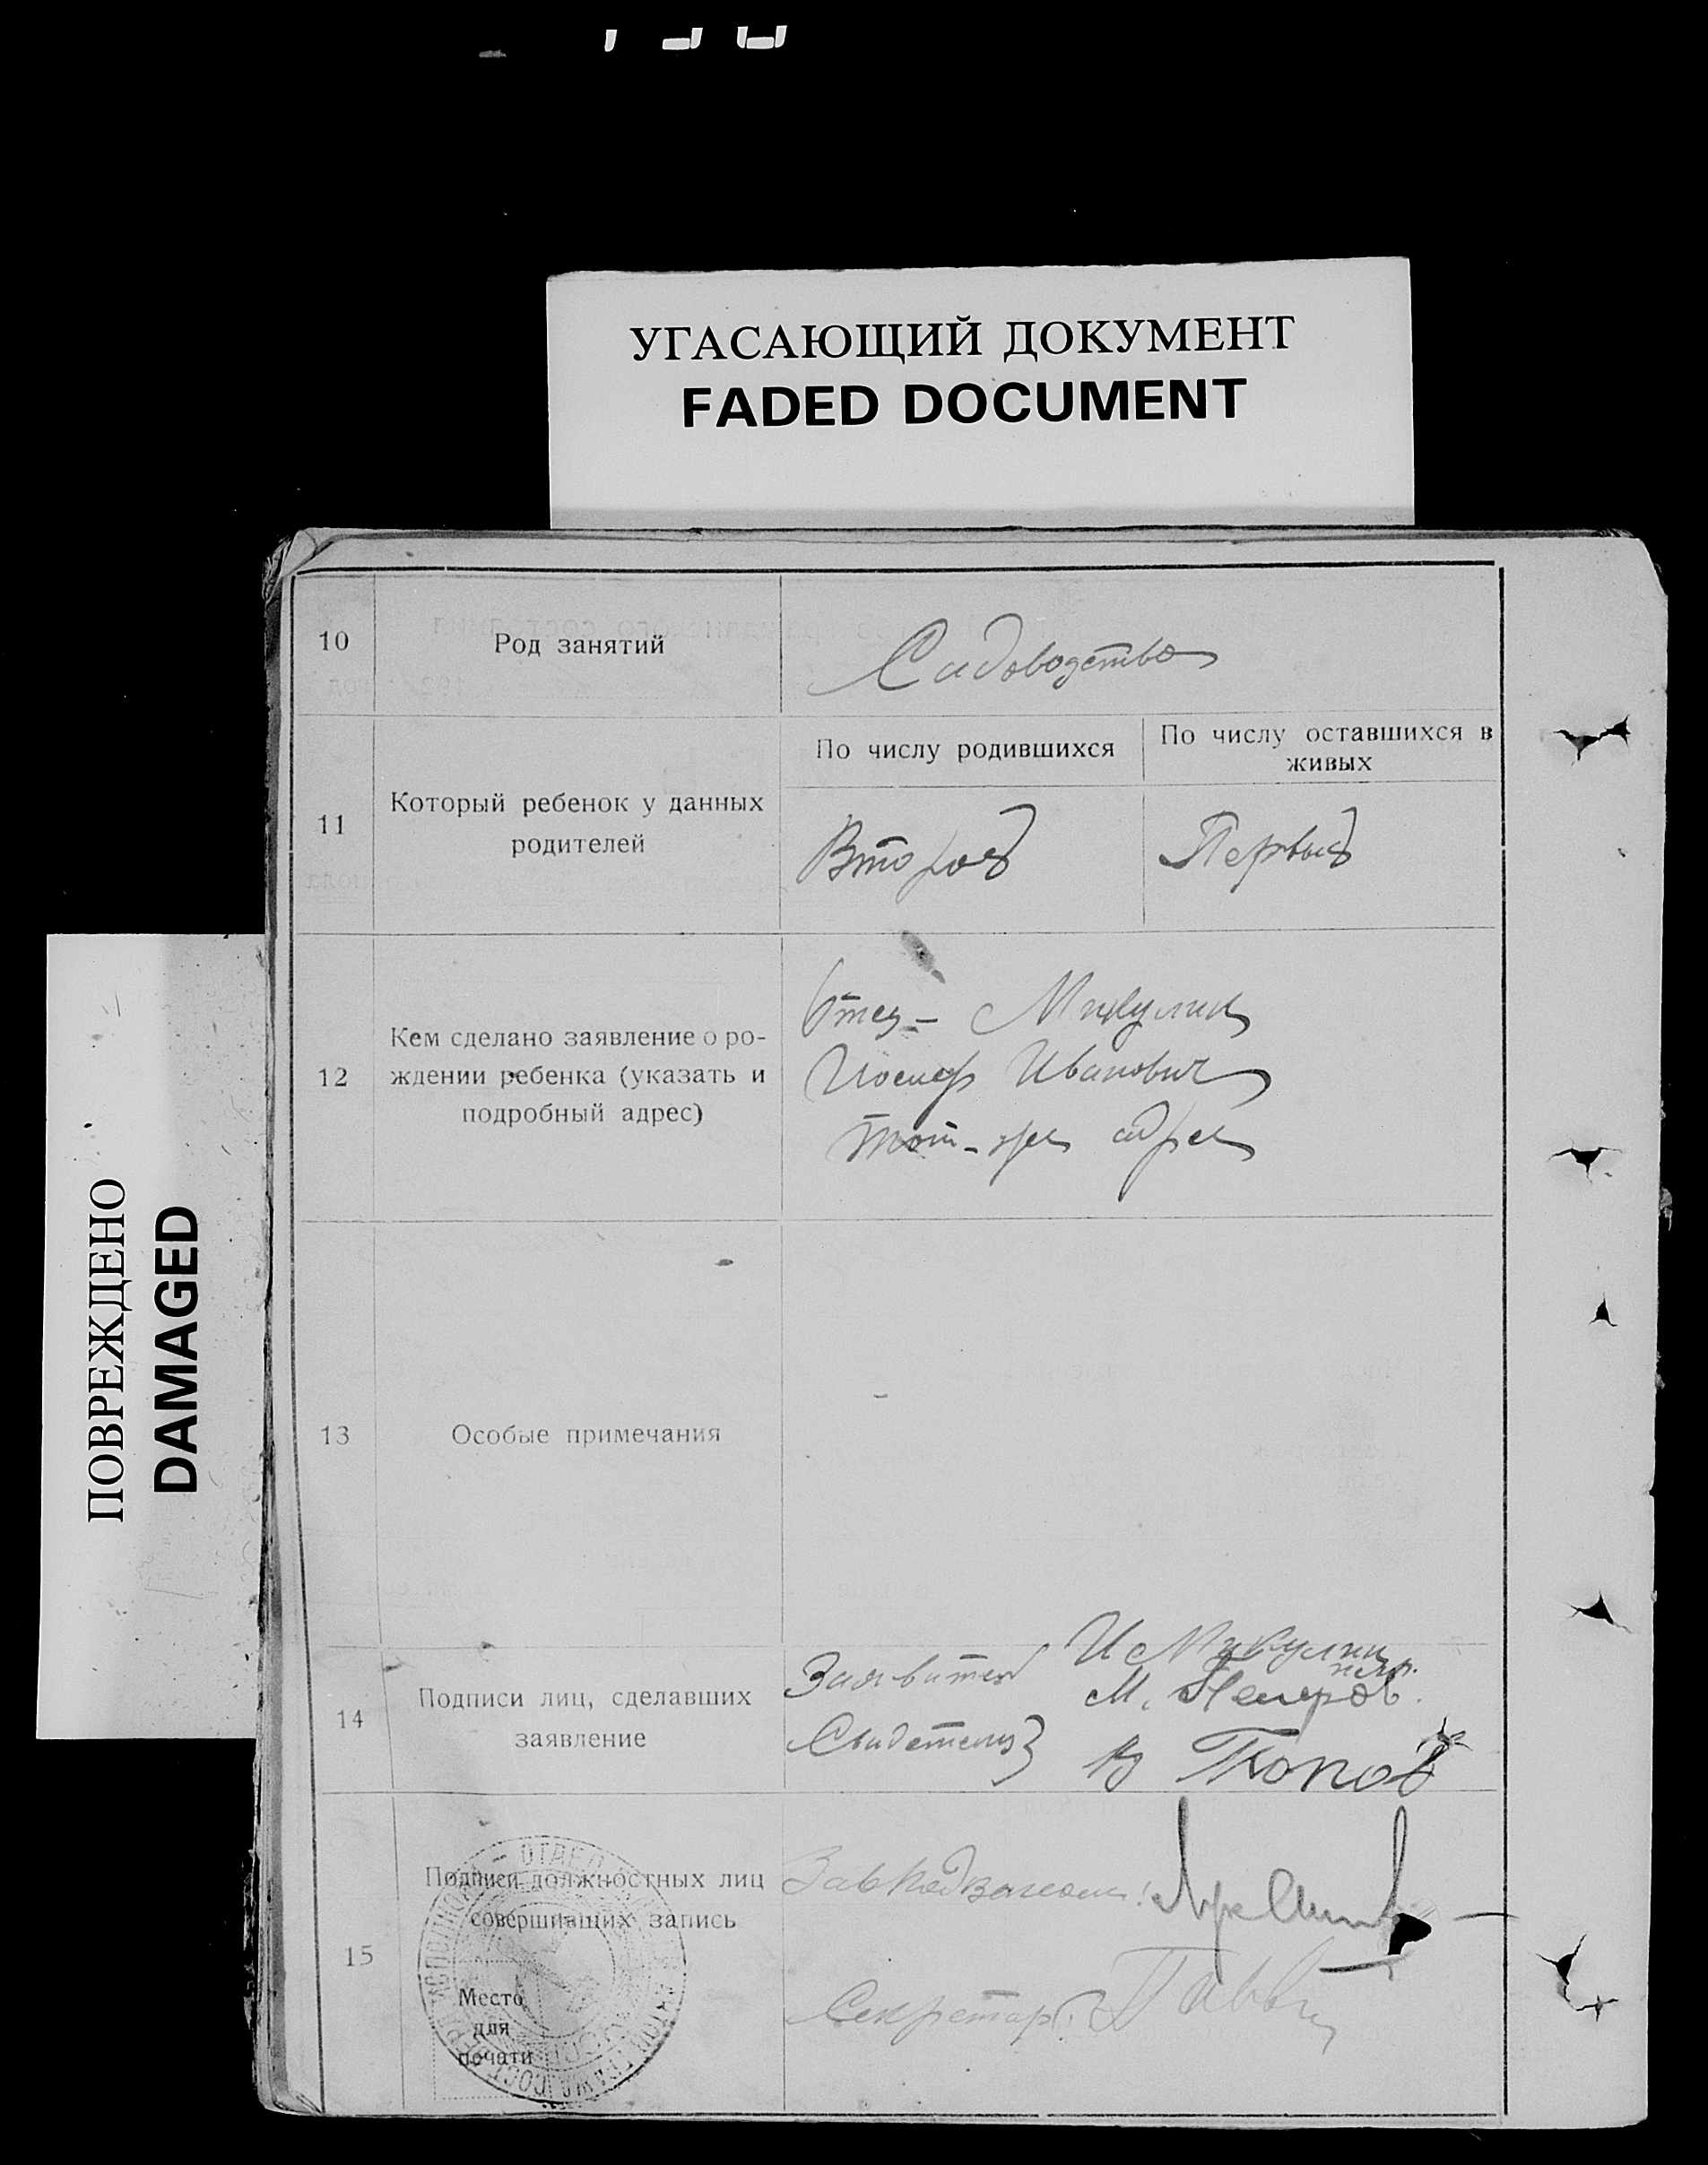 УГАСАЮЩИЙ ДОКУМЕНТ
FADED DOCUMENT
ПОВРЕЖДЕНО
DAMAGED
10 Род занятий Садоводство
11 Который ребенок у данных
родителей
По числу родившихся
Второй
По числу оставшихся в
живых
Первый
12 Кем сделано заявление о ро-
ждении ребенка (указать и
подробный адрес)
Отец - Микулин
Иосиф Иванович
тот-же адрес
13 Особые примечания
14 Подписи лиц, сделавших
заявление
Заявитель И Микулин
Свидетели М.
В Попов
15 Подписи должностных лиц
совершивших запись
Место
для
печати
Секретарь: